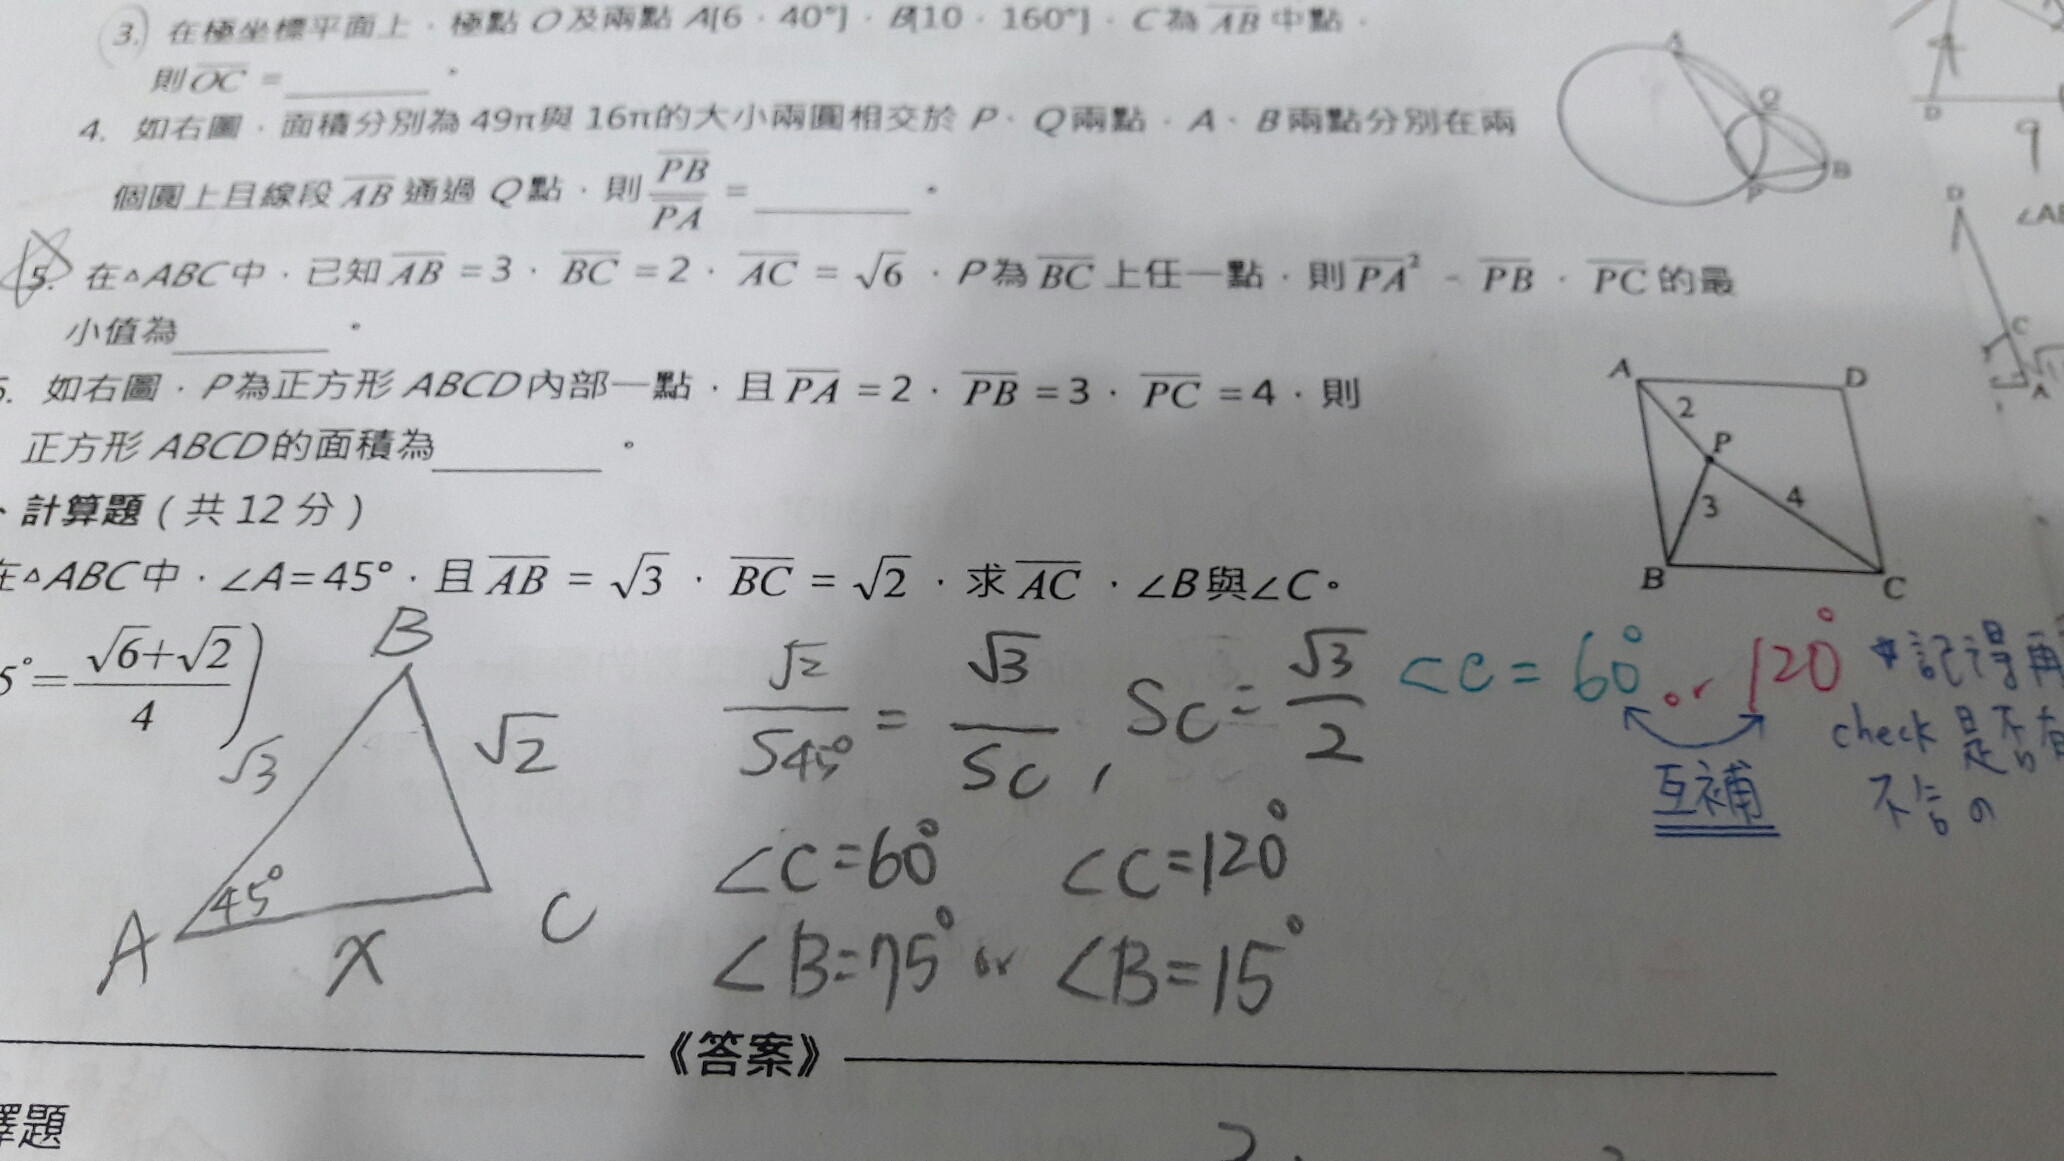 3. 在極坐標平面上，極點 O 及兩點 A[6，40°]，B[10，160°]，C 為 AB 中點，
則 OC = ________。
4. 如右圖，面積分別為 49π與 16π的大小兩圓相交於 P、Q 兩點，A、B 兩點分別在兩
個圓上且線段 AB 通過 Q 點，則 PB/PA = ________。
A
Q
B
P
5. 在△ABC 中，已知 AB = 3，BC = 2，AC = √6，P 為 BC 上任一點，則 PA² - PB · PC 的最
小值為________。
如右圖，P 為正方形 ABCD 內部一點，且 PA = 2，PB = 3，PC = 4，則
正方形 ABCD 的面積為________。
A D
2 P
3 4
B C
D
9
D
C
A
、計算題（共 12 分）
在△ABC 中，∠A = 45°，且 AB = √3，BC = √2，求 AC，∠B 與∠C。
5° = (√6+√2)/4 )
B
√3 √2
A 45° C
x
√2/S45° = √3/SC , SC = √3/2 ∠C = 60° or 120°
互補
*記得再
check 是否有
不合の
∠C=60° ∠C=120°
∠B=75° or ∠B=15°
《答案》
擇題